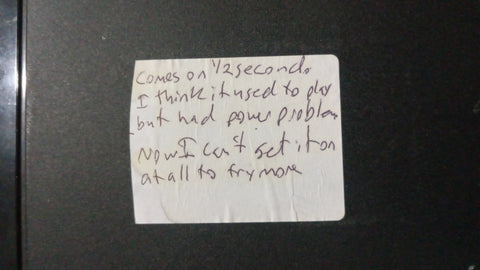 Comes on 1/2 second.
I think it used to play
but had power problem
Now I can't get it on
at all to try more